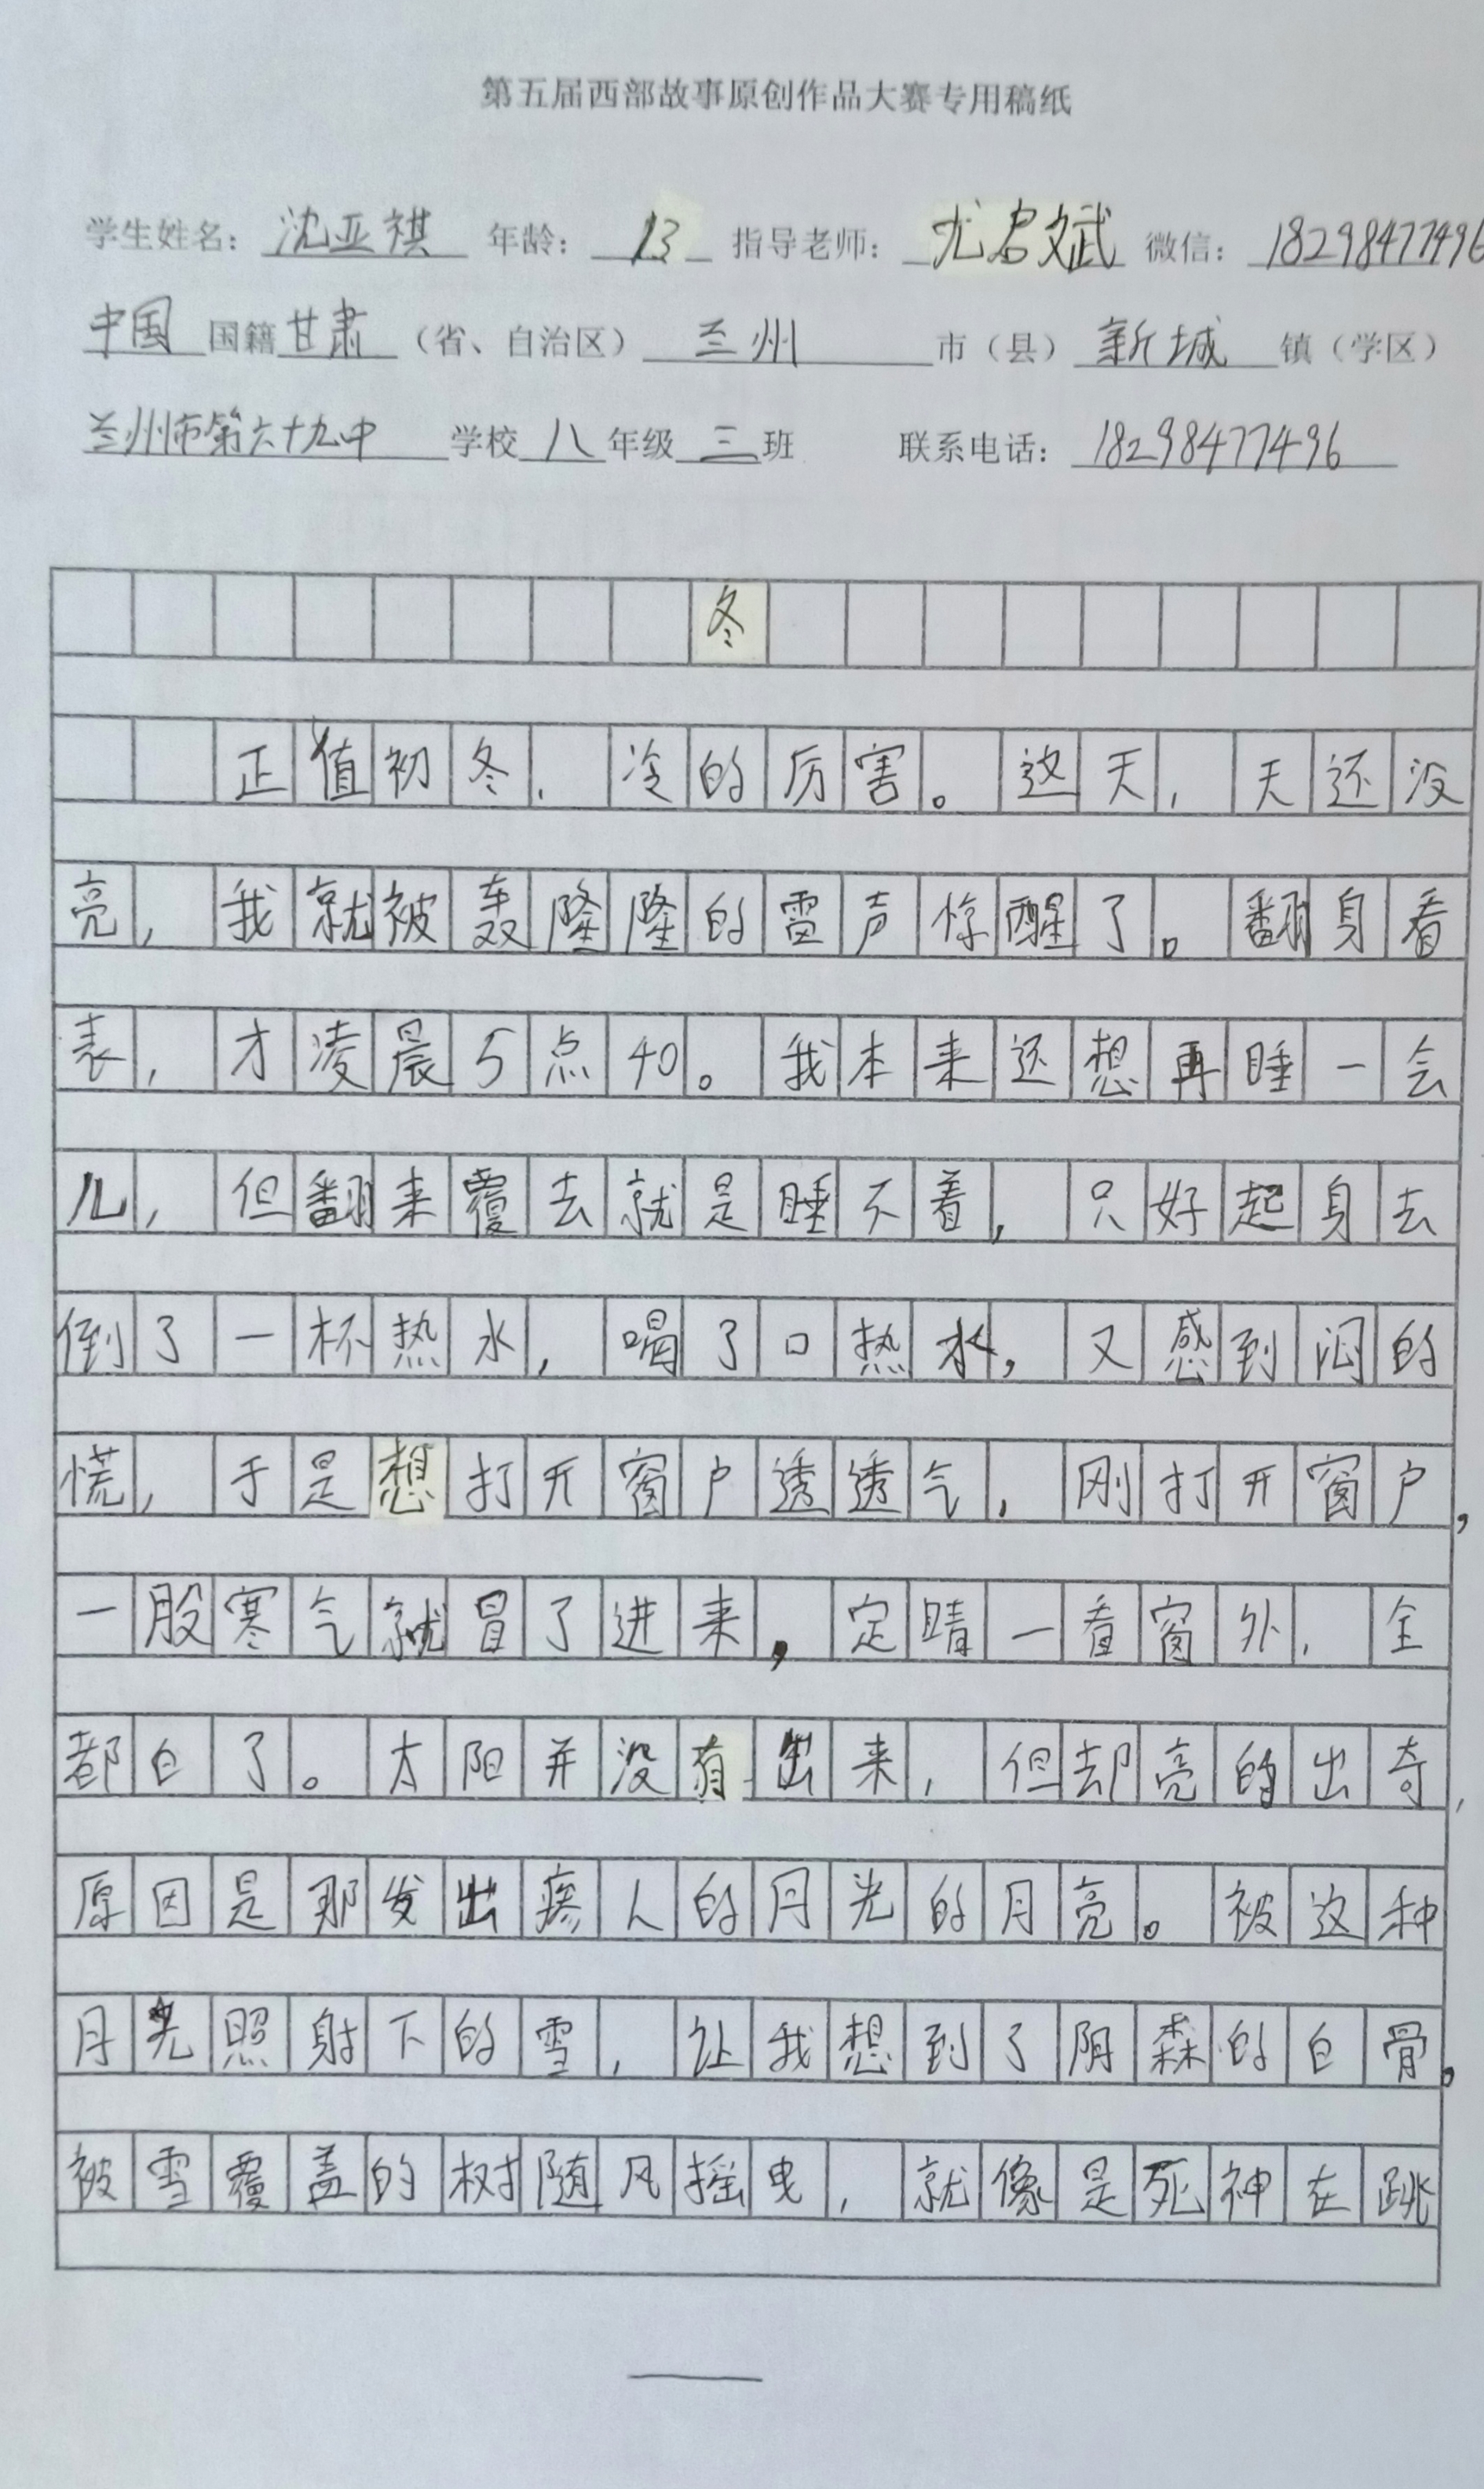 第五届西部故事原创作品大赛专用稿纸
学生姓名：沈亚祺 年龄：13 指导老师：尤君斌 微信：18298477496
中国国籍甘肃（省、自治区）兰州市（县）新城镇（学区）
兰州市第六十九中学校八年级三班 联系电话：18298477496
冬
正值初冬，冷的厉害。这天，天还没
亮，我就被轰隆隆的雷声惊醒了。翻身看
表，才凌晨5点40。我本来还想再睡一会
儿，但翻来覆去就是睡不着，只好起身去
倒了一杯热水，喝了口热水，又感到闷的
慌，于是想打开窗户透透气，刚打开窗户，
一股寒气就冒了进来，定睛一看窗外，全
都白了。太阳并没有出来，但却亮的出奇，
原因是那发出瘆人的月光的月亮。被这种
月光照射下的雪，让我想到了阴森的白骨。
被雪覆盖的树随风摇曳，就像是死神在跳
一